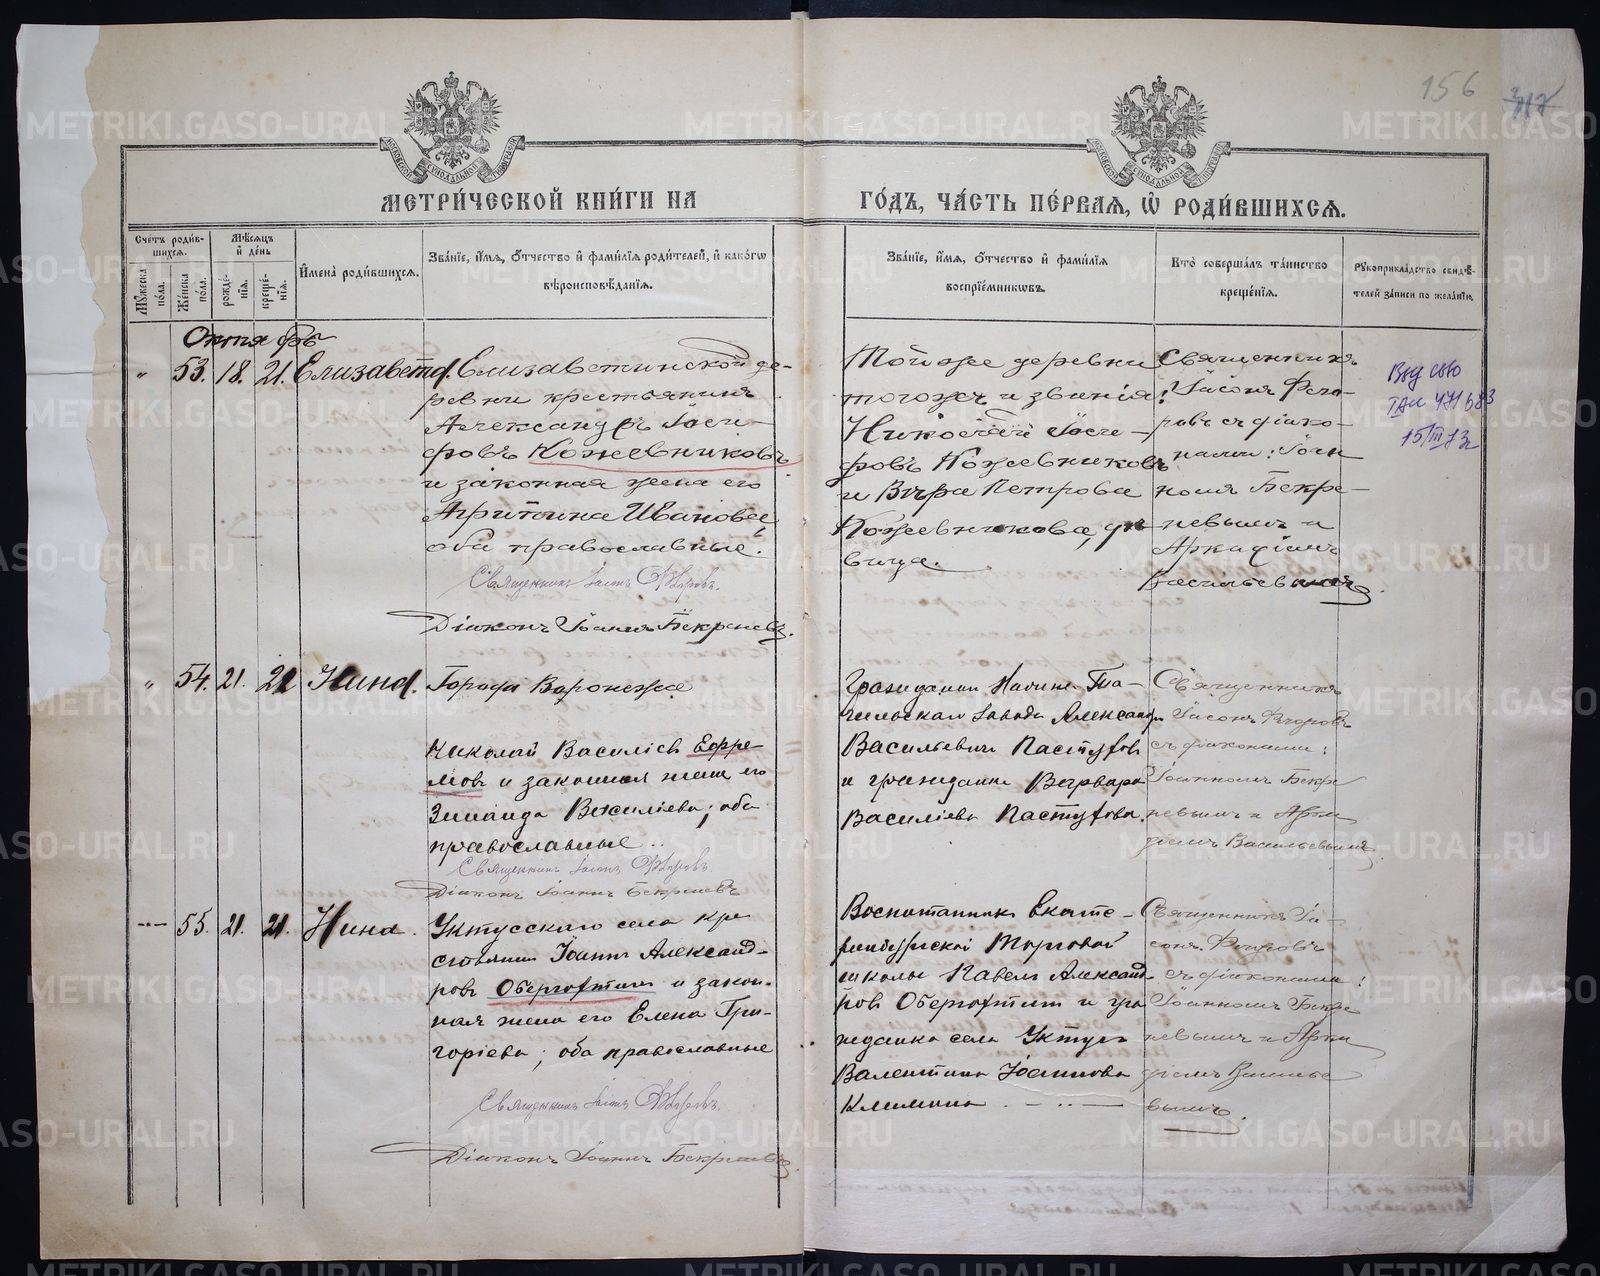 156
МЕТРИ́ЧЕСКОЙ КНИ́ГИ НА
ГО́ДЪ, ЧА́СТЬ ПЕ́РВАЯ, Ѡ РОДИ́ВШИХСЯ.
Сче́тъ роди́в-
шихся.
Мѣ́сяцъ
и де́нь
Мꙋ́жеска
по́ла.
Же́нска
по́ла.
рожде́-
нїя.
креще́-
нїя.
Имена̀ роди́вшихся.
Зва́нїе, и́мя, о́тчество и фами́лїя роди́телей, и како́гѡ
вѣроисповѣ́данїя.
Зва́нїе, и́мя, о́тчество и фами́лїя
воспрїе́мникѡвъ.
Кто̀ соверша́лъ та́инство
креще́нїя.
Рꙋкоприкла́дство свидѣ́-
телей за́писи по жела́нїю.
Октябрь
" 53. 18. 21. Елизавета.
Елизаветинской де-
ревни крестьянинъ
Александръ Іоси-
фовъ Кожевниковъ
и законная жена его
Агрипина Иванова,
оба православные.
Священникъ Іасонъ Ѳлоровъ.
Діаконъ Іоаннъ Бекреневъ.
Той же деревни
тогоже и званія:
Николай Іоси-
фовъ Кожевниковъ
и Вѣра Петрова
Кожевникова, дѣ-
вица.
Священникъ
Іасонъ Фло-
ровъ съ діако-
нами: Іоан
номъ Бекре-
невымъ и
Аркадіемъ
Васильевымъ.
15/III 73г
" 54. 21. 21 Нина.
Города Воронежа
Николай Василіев Ефре-
мов и законная жена его
Зинаида Василіева; оба
православные..
Священникъ Іасонъ Ѳлоровъ
Діаконъ Іоаннъ Бекреневъ
Гражданин Нижне-Та-
гильскаго завода Александр
Васильевич Пастухов
и гражданка Варвара
Василіева Пастухова.
Священникъ
Іасонъ Флоровъ
съ діаконами:
Іоанномъ Бекре
невымъ и Арка
діемъ Васильевымъ.
--- 55. 21. 21. Нина.
Уктусскаго села кре
стьянин Іоаннъ Александ-
ров Обергохтин и закон-
ная жена его Елена Гри-
горіева; оба православные
Священникъ Іасонъ Ѳлоровъ.
Діаконъ Іоаннъ Бекреневъ
Воспитанник Екате-
ринбургской Торговой
школы Павел Александ-
ров Обергохтин и гра
жданка села Уктус
Валентина Іоаннова
Климина
Священникъ Іа-
сонъ Флоровъ
съ діаконами:
Іоанномъ Бекре
невымъ и Арка
діемъ Василье
вымъ.
METRIKI.GASO-URAL.RU